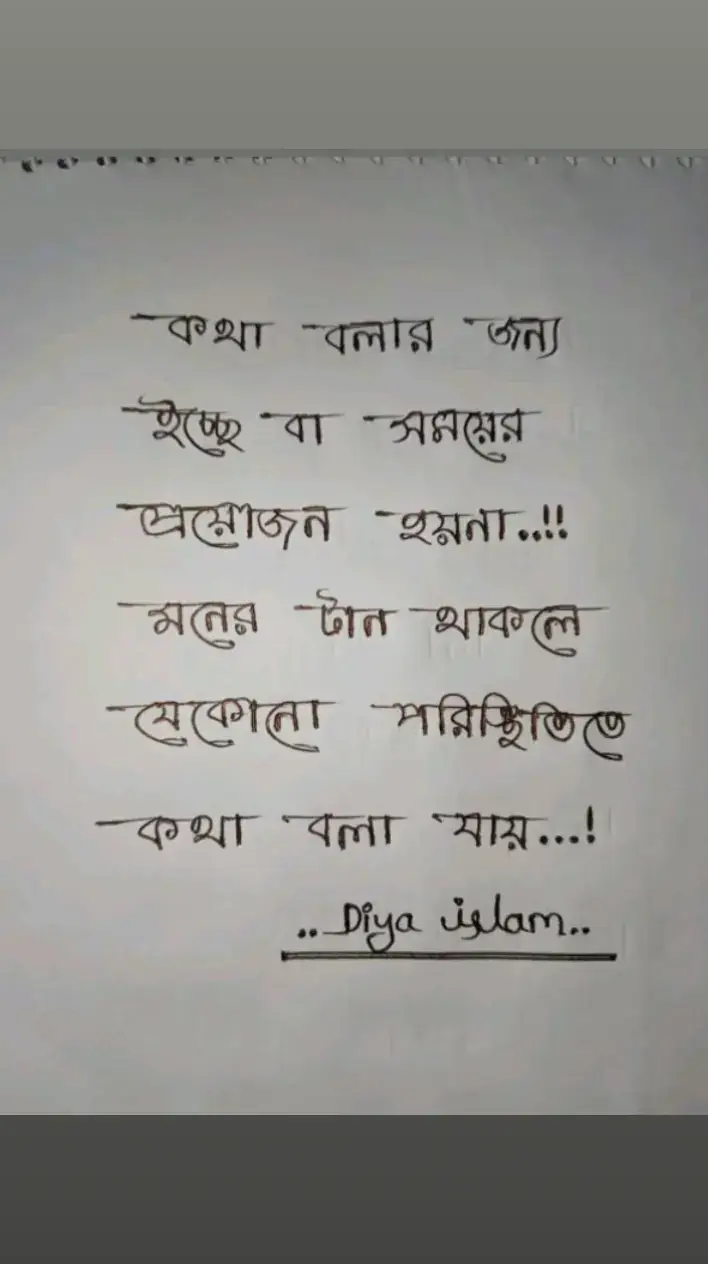 কথা বলার জন্য
ইচ্ছে বা সময়ের
প্রয়োজন হয়না..!!
মনের টান থাকলে
যেকোনো পরিস্থিতিতে
কথা বলা যায়...!
..Diya islam..